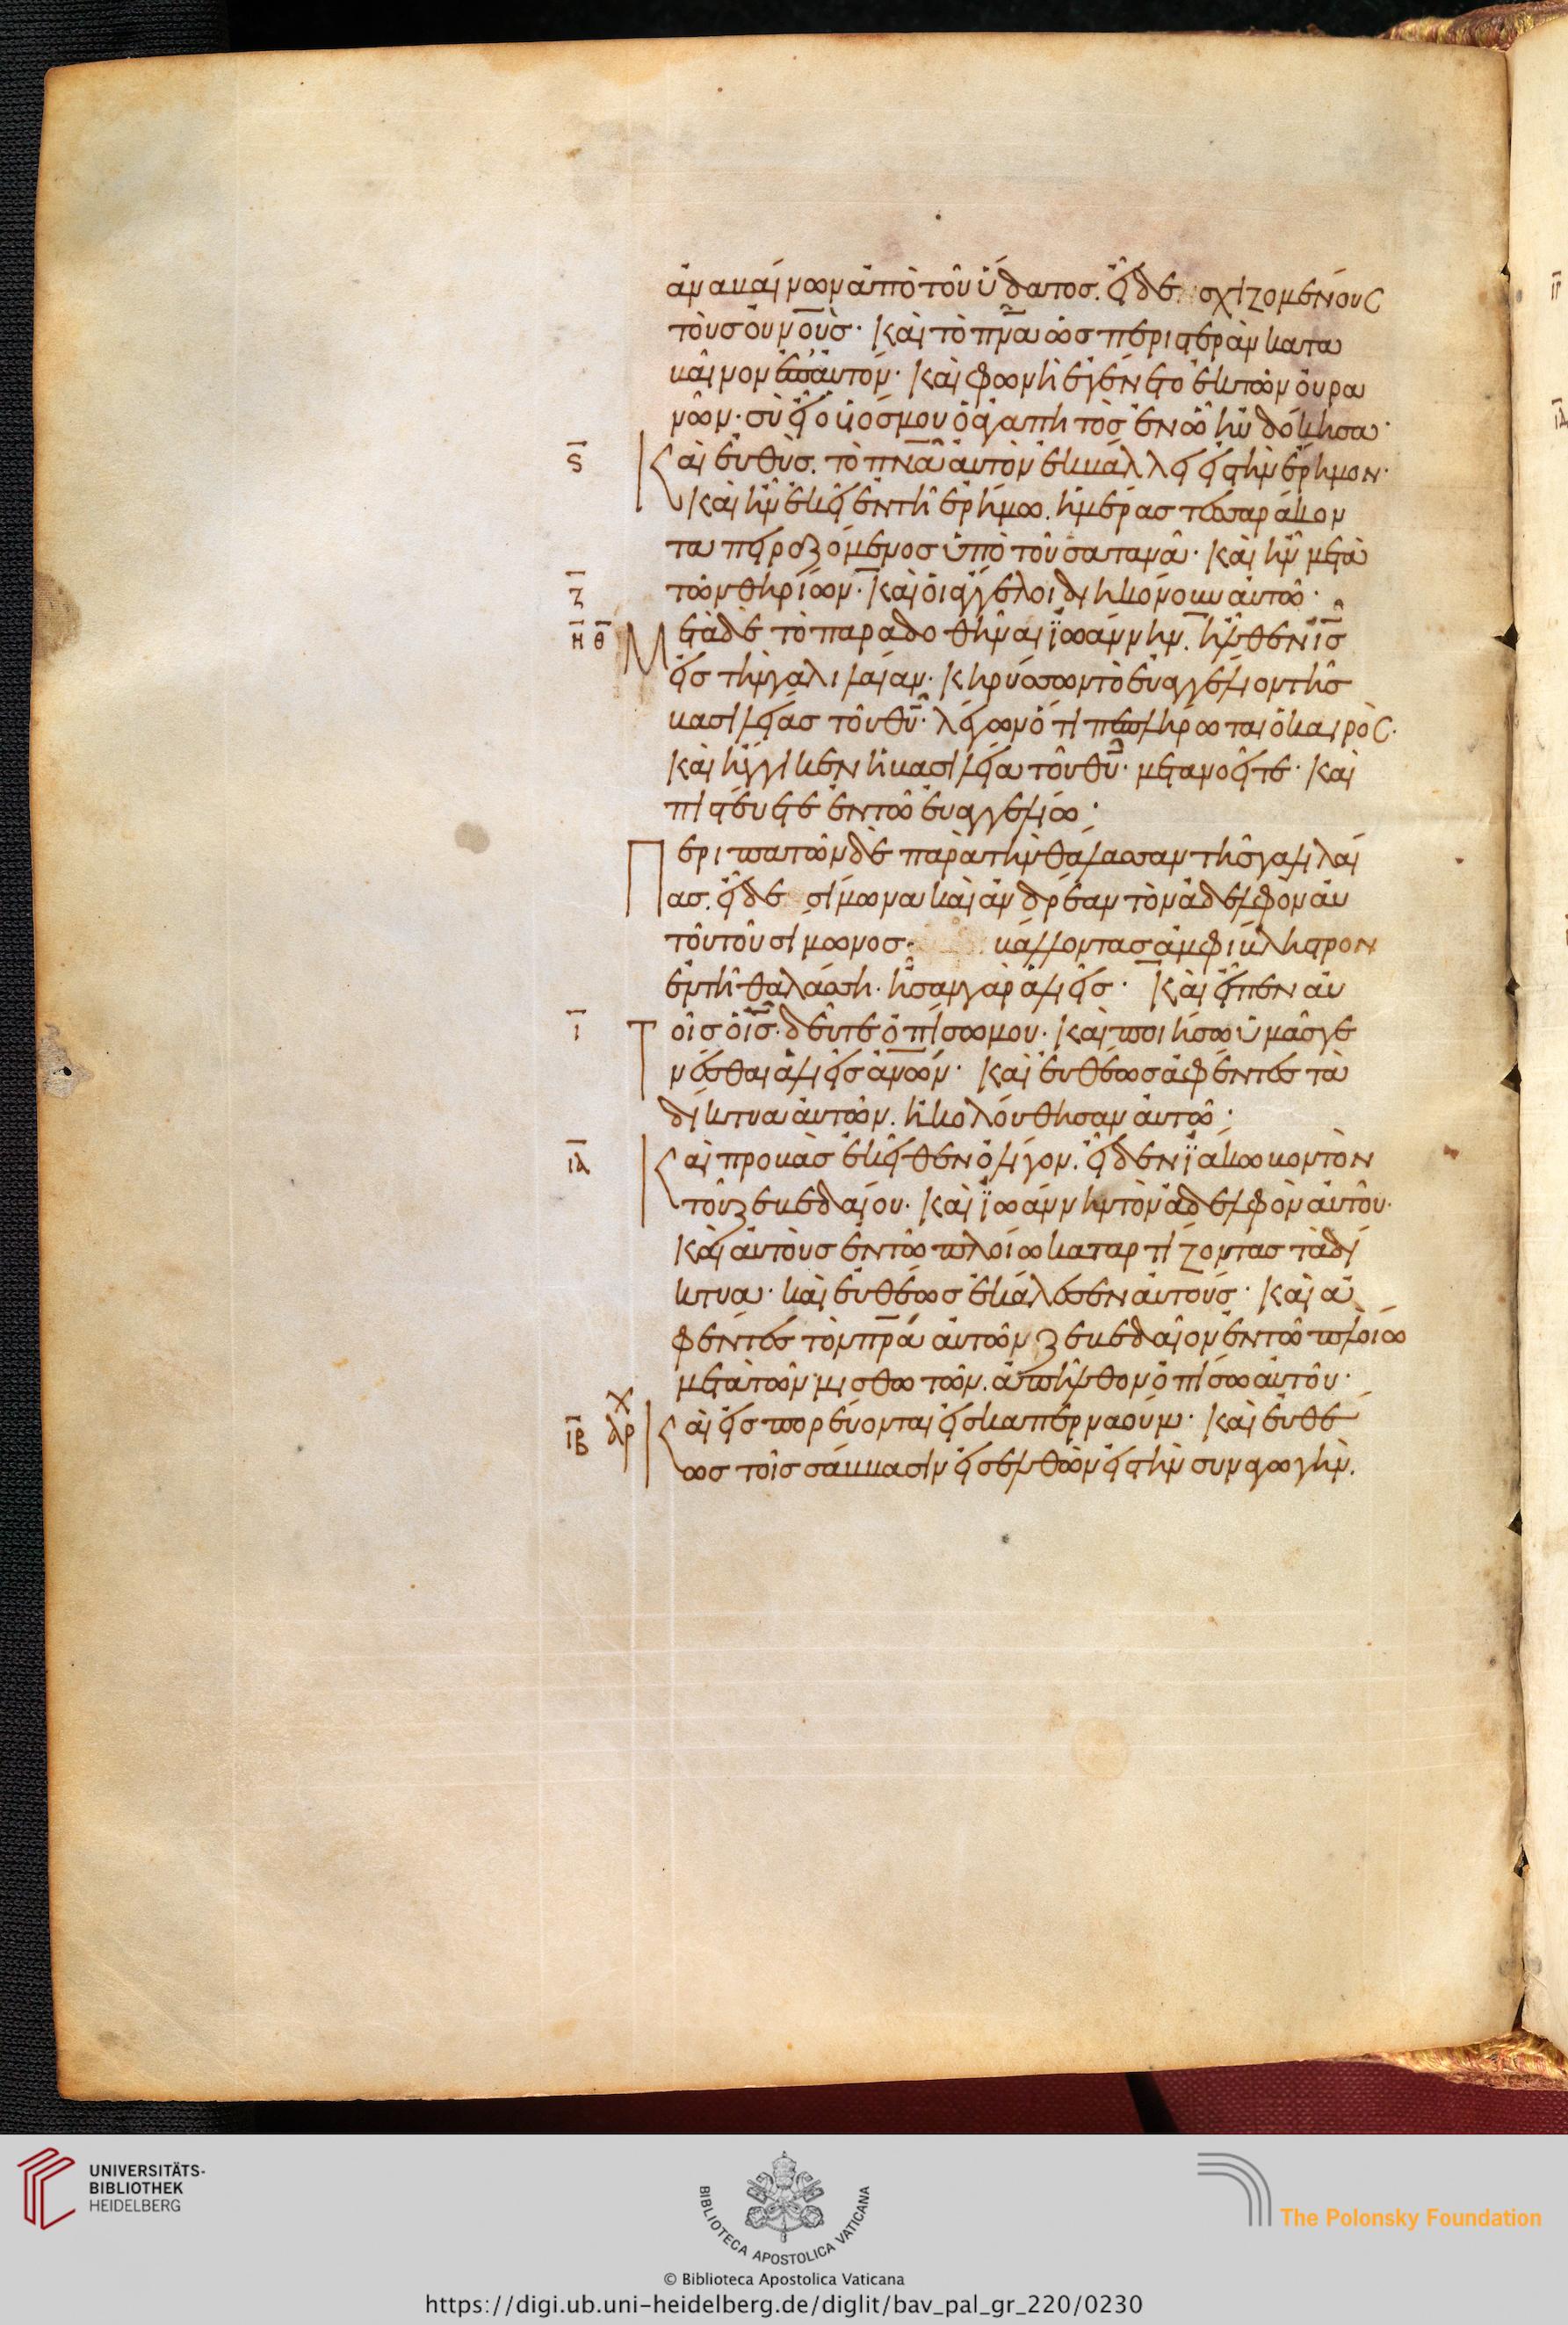 ἀναβαίνων ἀπὸ τοῦ ὕδατος. εἶδε σχιζομένους
τοὺς οὐνοὺς· Καὶ τὸ πνα ὡς περιστερὰν κατα
βαῖνον ἐπ' αὐτόν· Καὶ φωνὴ ἐγένετο ἐκ τῶν οὐρα
νῶν· σὺ εἶ ὁ υἱός μου ὁ ἀγαπητὸς ἐν ᾧ ηὐδόκησα·
ς Καὶ εὐθὺς. τὸ πνα αὐτὸν ἐκβάλλει εἰς τὴν ἔρημον·
Καὶ ἦν ἐκεῖ ἐν τῆ ἐρήμω. ἡμέρας τεσσαράκον
τα πειραζόμενος ὑπὸ τοῦ σατανᾶ· Καὶ ἦν μετὰ
ζ τῶν θηρίων· Καὶ οἱ ἄγγελοι διηκόνουν αὐτῶ·
η θ Μετὰ δὲ τὸ παραδοθῆναι ϊωάννην. ἦλθεν ὁ ις
εἰς τὴν γαλιλαίαν· Κηρύσσων τὸ εὐαγγέλιον τῆς
βασιλείας τοῦ θυ· λέγων ὅτι πεπλήρωται ὁ καιρὸς·
Καὶ ἤγγικεν ἡ βασιλεία τοῦ θυ· μετανοεῖτε· Καὶ
πιστεύετε ἐν τῶ εὐαγγελίω·
Περιπατῶν δὲ παρὰ τὴν θάλασσαν τῆς γαλιλαί
ας. εἶδε σίμωνα καὶ ἀνδρέαν τὸν ἀδελφὸν αὐ
τοῦ τοῦ σίμωνος· βάλλοντας ἀμφίβληστρον
ἐν τῆ θαλάσση· ἦσαν γὰρ ἁλιεῖς· Καὶ εἶπεν αὐ
ι Τοῖς ὁ ις· δεῦτε ὀπίσω μου· Καὶ ποιήσω ὑμᾶς γε
νέσθαι ἁλιεῖς ἀνων· Καὶ εὐθέως ἀφέντες τὰ
δίκτυα αὐτῶν. ἠκολούθησαν αὐτῶ·
ια Καὶ προβὰς ἐκεῖθεν ὀλίγον. εἶδεν ϊάκωβον τὸν
τοῦ ζεβεδαίου· Καὶ ϊωάννην τὸν ἀδελφὸν αὐτοῦ·
Καὶ αὐτοὺς ἐν τῶ πλοίω καταρτίζοντας τὰ δί
κτυα· καὶ εὐθέως ἐκάλεσεν αὐτούς· Καὶ ἀ
φέντες τὸν πρα αὐτῶν ζεβεδαῖον ἐν τῶ πλοίω
μετὰ τῶν μισθωτῶν. ἀπῆλθον ὀπίσω αὐτοῦ·
ιβ αρχ Καὶ εἰσπορεύονται εἰς καπερναούμ· Καὶ εὐθέ
ως τοῖς σάββασιν εἰσελθὼν εἰς τὴν συναγωγὴν.
UNIVERSITÄTS-
BIBLIOTHEK
HEIDELBERG
BIBLIOTECA APOSTOLICA VATICANA
The Polonsky Foundation
© Biblioteca Apostolica Vaticana
https://digi.ub.uni-heidelberg.de/diglit/bav_pal_gr_220/0230